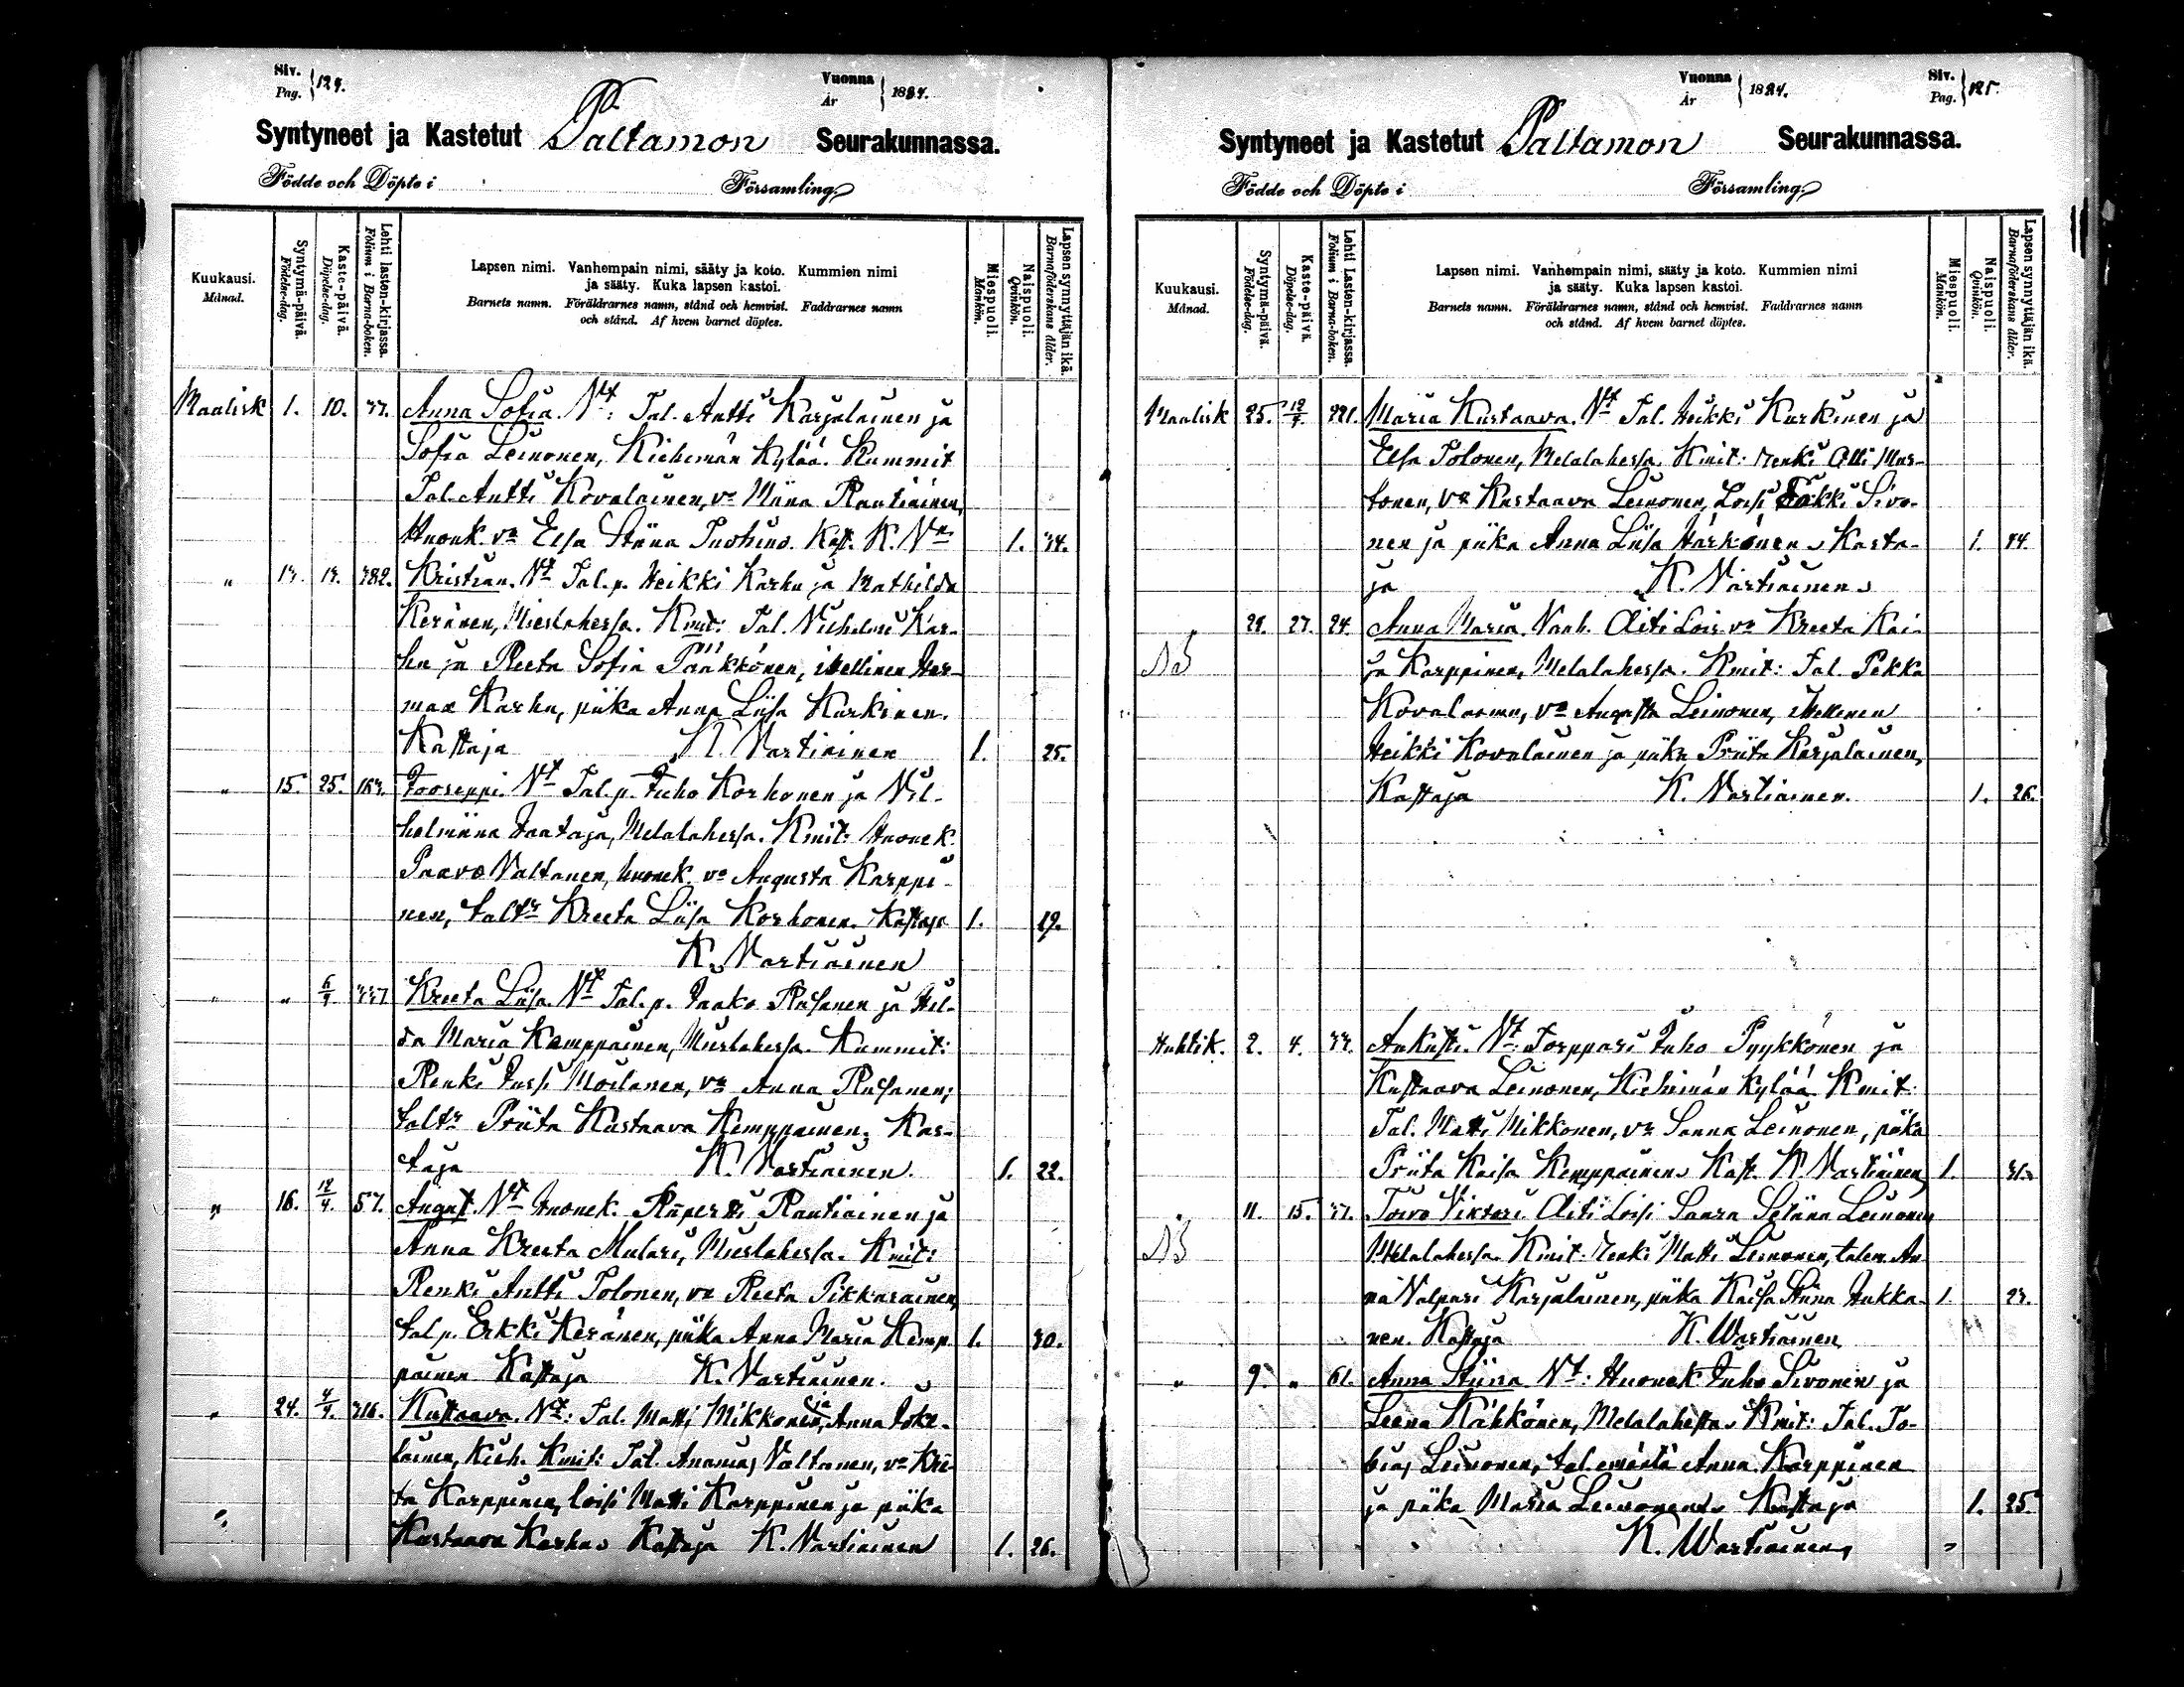 Siv. Pag. 124. Vuonna År 1884.
Syntyneet ja Kastetut Paltamon Seurakunnassa.
Födde och Döpte i Församling.
Kuukausi. Månad.
Syntymä-päivä. Födelse-dag.
Kaste-päivä. Döpelse-dag.
Lehti lasten-kirjassa. Folium i Barna-boken.
Lapsen nimi. Vanhempain nimi, sääty ja koto. Kummien nimi
ja sääty. Kuka lapsen kastoi.
Barnets namn. Föräldrarnes namn, stånd och hemvist. Faddrarnes namn
och stånd. Af hvem barnet döptes.
Miespuoli. Mankön.
Naispuoli. Qvinkön.
Lapsen synnyttäjän ikä. Barnaföderskans ålder.
Maalisk 1. 10. Anna Sofia. Vt: Tal. Antti Karjalainen ja
Sofia Leinonen, Kiehimän Kylää. Kummit
Tal. Antti Kovalainen, vo Miina Rautiainen,
Huonk. vo Elsa Stiina Tuohino. Kast. K. Vn 1. 34.
" 382. Kristian. Vt Tal. p. Heikki Karhu ja Mathilda
Keränen, Mieslahessa. Kmit: Tal. Vilhelmi Kar-
hu ja Reeta Sofia Pääkkönen, itellinen Her-
man Karhu, piika Anna Liisa Kurkinen.
Kastaja K. Vartiainen 1. 25.
" 15. 25. Jooseppi. Vt Tal. p. Juho Korhonen ja Vil-
helmiina Jaataja, Melalahessa. Kmit: Huonek.
Paavo Valtanen, huonek. vo Augusta Karppi-
nen, taltr Kreeta Liisa Korhonen. Kastaja 1. 29.
K. Vartiainen
" " 6/4 Kreeta Liisa. Vt Tal. p. Jaako Rusanen ja Hil-
da Maria Kemppainen, Mieslahessa. Kummit:
Renki Jussi Moilanen, vo Anna Rusanen;
taltr Priita Kustaava Kemppainen. Kas-
taja K. Vartiainen. 1. 22.
" 16. 12/4. 57. August. Vt Huonek. Ruperti Rautiainen ja
Anna Kreeta Mulari, Mieslahessa. Kmit:
Renki Antti Tolonen, vo Reeta Pikkarainen,
tal p. Erkki Keränen, piika Anna Maria Kemp- 1. 30.
painen Kastaja K. Vartiainen.
" 24. 4/4. 316. Kustaava. Vt: Tal. Matti Mikkonen, ja Anna Joke-
lainen, Kieh. Kmit: Tal. Ananias Valtanen, vo Kree-
ta Karppinen, loisi Matti Karppinen ja piika
Kustaava Karhu. Kastaja K. Vartiainen 1. 26.
Vuonna År 1884. Siv. Pag. 125.
Syntyneet ja Kastetut Paltamon Seurakunnassa.
Födde och Döpte i Församling.
Kuukausi. Månad.
Syntymä-päivä. Födelse-dag.
Kaste-päivä. Döpelse-dag.
Lehti Lasten-kirjassa. Folium i Barna-boken.
Lapsen nimi. Vanhempain nimi, sääty ja koto. Kummien nimi
ja sääty. Kuka lapsen kastoi.
Barnets namn. Föräldrarnes namn, stånd och hemvist. Faddrarnes namn
och stånd. Af hvem barnet döptes.
Miespuoli. Mankön.
Naispuoli. Qvinkön.
Lapsen synnyttäjän ikä. Barnaföderskans ålder.
Maalisk 25. 12/4. Maria Kustaava. Vt Tal. Heikki Kurkinen ja
Elsa Tolonen, Melalahessa. Kmit: renki Olli Mus-
tonen, vo Kustaava Leinonen, Loisi Jaakki Sivo-
nen ja piika Anna Liisa Härkönen. Kasta- 1. 44.
ja K. Vartiainen.
" 27. 24. Anna Maria. Vanh. Äiti Lois vo Kreeta Kai-
NB ja Karppinen, Melalahessa. Kmit: Tal. Pekka
Kovalainen, vo Augusta Leinonen, itellinen
Heikki Kovalainen ja piika Priita Karjalainen,
Kastaja K. Vartiainen. 1. 26.
Huhtik. 2. 4. Aukusti. Vt: Torppari Juho Pyykkönen ja
Kustaava Leinonen, Kiehimän Kylää Kmit:
Tal. Matti Mikkonen, vo Sanna Leinonen, piika
Priita Kaisa Kemppainen. Kast. K. Vartiainen 1.
" 11. 15. Toivo Viktori Äiti Loisi Saara Seliina Leinonen
NB Melalahessa. Kmit: renki Matti Leinonen, talen. An-
na Valpuri Karjalainen, piika Kaisa Stiina Hukka- 1.
nen. Kastaja K. Wartiainen
" 9. " 61. Anna Stiina. Vt: Huonek. Juho Sivonen ja
Leena Kähkönen, Melalahessa. Kmit: Tal. To-
bias Leinonen, tal. emäntä Anna Karppinen
ja piika Maria Leinonen. Kastaja 1. 25.
K. Wartiainen